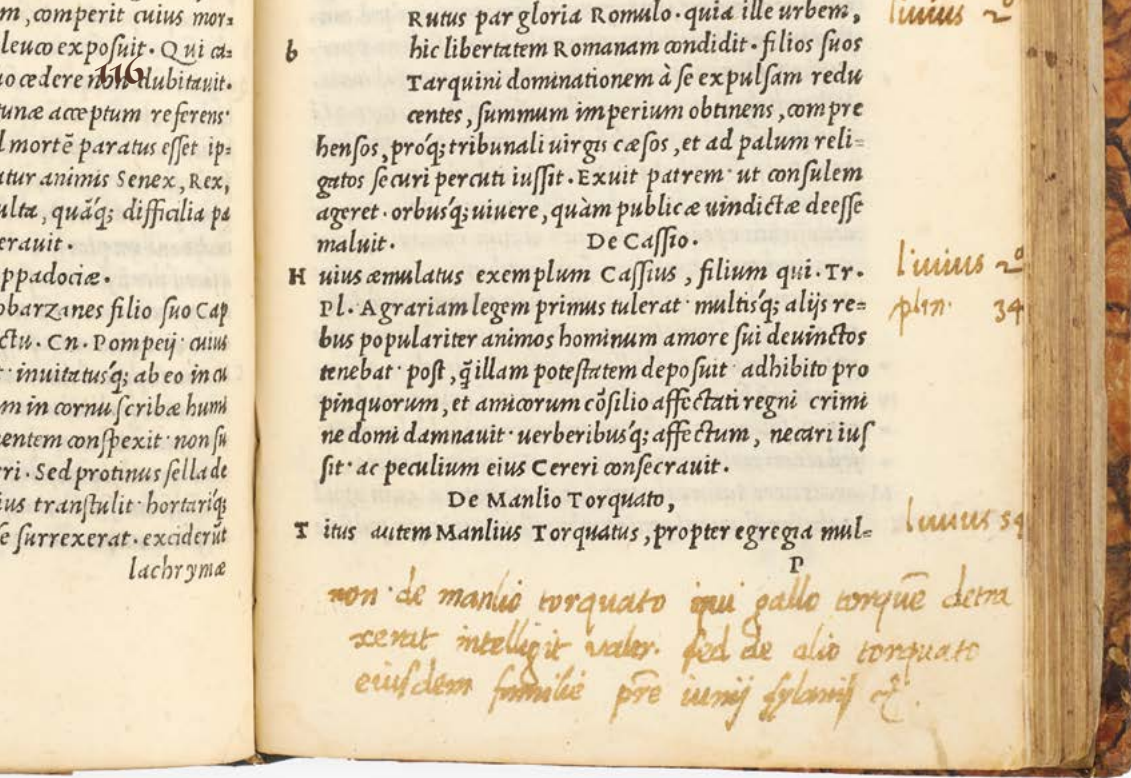 m, comperit cuius mor:
leuco exposuit. Qui ca:
uo cedere non dubitauit.
116
tunæ acceptum referens·
l mortē paratus esset ip:
atur animis Senex, Rex,
ulta, quāq; difficilia pa
erauit.
ppadociæ.
obarzanes filio suo Cap
ctu. Cn. Pompeij· cuius
t· inuitatusq́; ab eo in cu
m in cornu scribæ humi
entem conspexit· non su
ri. Sed protinus sella de
ius transtulit· hortariq́;
se surrexerat. exciderūt
lachrymæ
Rutus par gloria Romulo. quia ille urbem,
b hic libertatem Romanam condidit. filios suos
Tarquini dominationem à se expulsam redu
centes, summum imperium obtinens, compre
hensos, pro'q; tribunali uirgis cæsos, et ad palum reli=
gatos securi percuti iussit. Exuit patrem· ut consulem
ageret· orbusq́; uiuere, quàm publicæ uindictæ deesse
maluit. De Cassio.
H uius æmulatus exemplum Cassius, filium qui. Tr.
Pl. Agrariam legem primus tulerat· multisq́; alijs re=
bus populariter animos hominum amore sui deuinctos
tenebat· post, q̃ illam potestatem deposuit· adhibito pro
pinquorum, et amicorum cōsilio affectati regni crimi
ne domi damnauit· uerberibusq́; affectum, necari ius
sit· ac peculium eius Cereri consecrauit.
De Manlio Torquato,
T itus autem Manlius Torquatus, propter egregia mul=
P
liuius 2º
liuius 2º
plin. 34
liuius 54
non de manlio torquato qui gallo torquē detra
xerat intelligit valer. sed de alio torquato
eiusdem familie pr̄e iunij sylanij